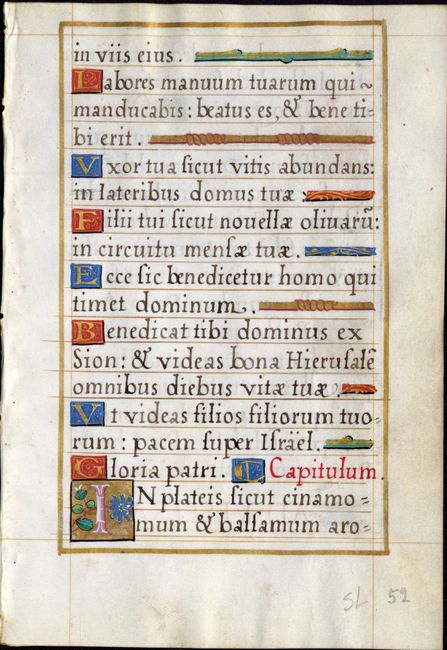 in viis eius.
Labores manuum tuarum qui~
manducabis: beatus es, & bene ti-
bi erit.
Vxor tua sicut vitis abundans:
in lateribus domus tuæ:
Filii tui sicut nouellæ oliuarũ:
in circuitu mensæ tuæ.
Ecce sic benedicetur homo qui
timet dominum.
Benedicat tibi dominus ex
Sion: & videas bona Hierusalẽ
omnibus diebus vitæ tuæ.
Vt videas filios filiorum tuo-
rum: pacem super Israel.
Gloria patri. Capitulum.
IN plateis sicut cinamo-
mum & balsamum aro-
SL 52